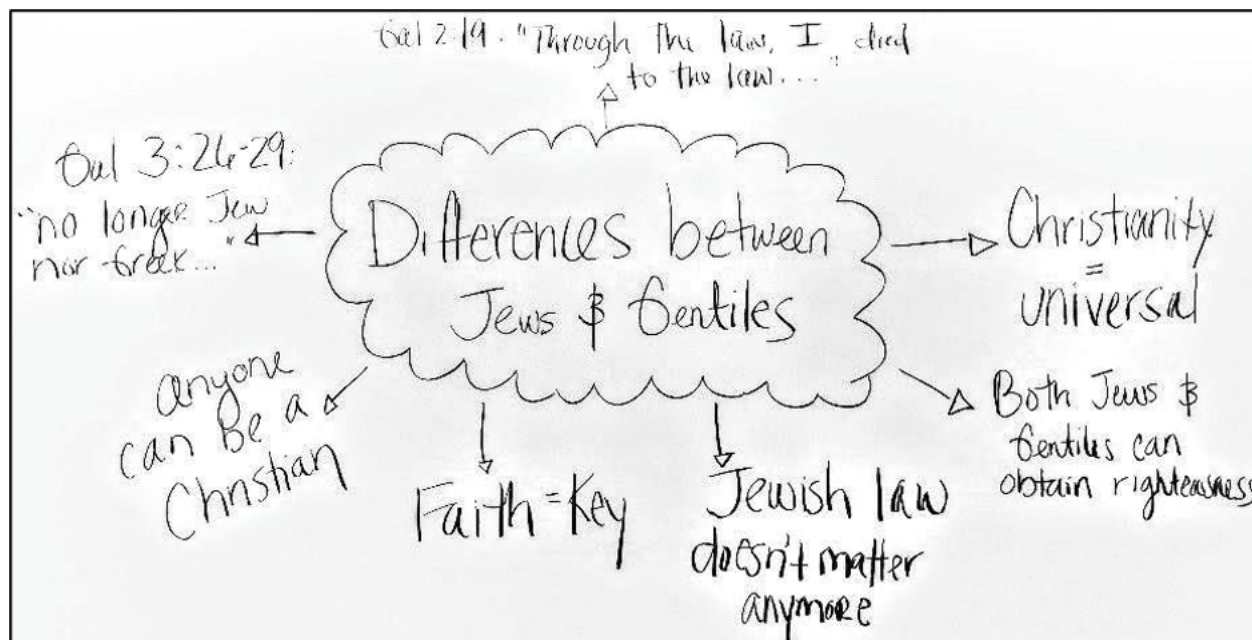 Gal 2:19. "Through the law, I died
to the law..."
Gal 3:26-29:
"no longer Jew
nor Greek..."
Differences between
Jews & Gentiles
Christianity
=
universal
anyone
can be a
Christian
Faith = Key
Jewish law
doesn't matter
anymore
Both Jews &
Gentiles can
obtain righteousness